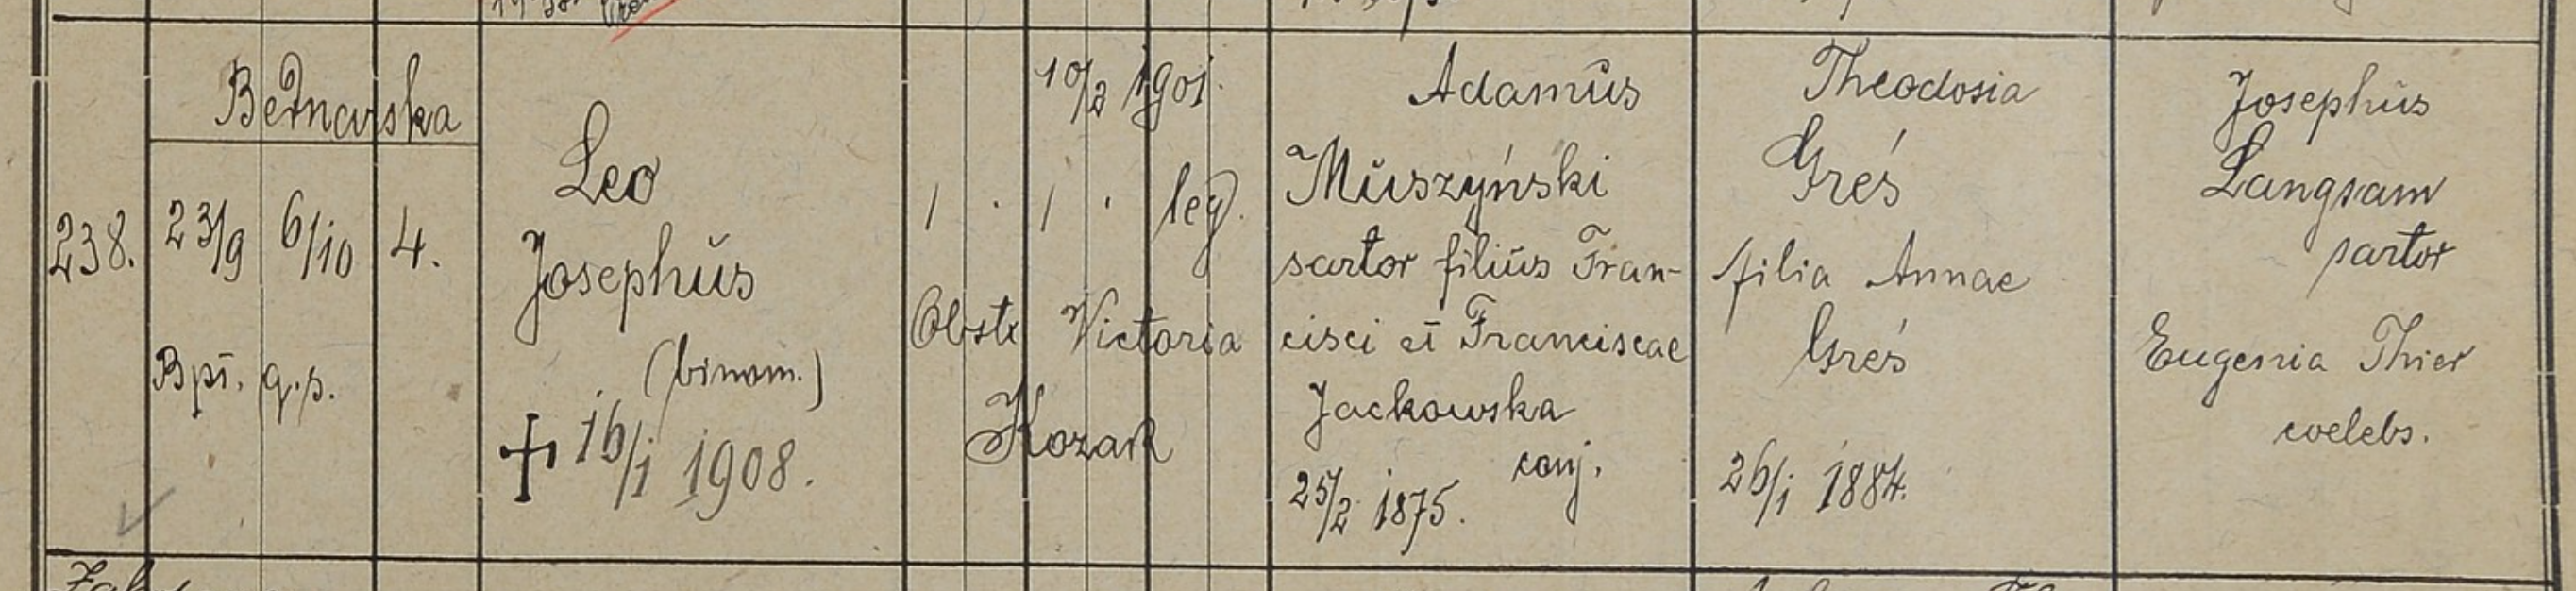 Bednarska
238.
23/9
6/10
4.
Bpt. q.s.
Leo
Josephus
(binom.)
+ 16/1 1908.
10/2 1901.
1 · 1 · leg.
Obstx Victoria
Kozak
Adamus
Muszyński
sartor filius Fran-
cisci et Franciscae
Jackowska
conj.
25/2 1875.
Theodosia
Greś
filia Annae
Greś
26/1 1884.
Josephus
Langsam
sartor
Eugenia Thier
coelebs.